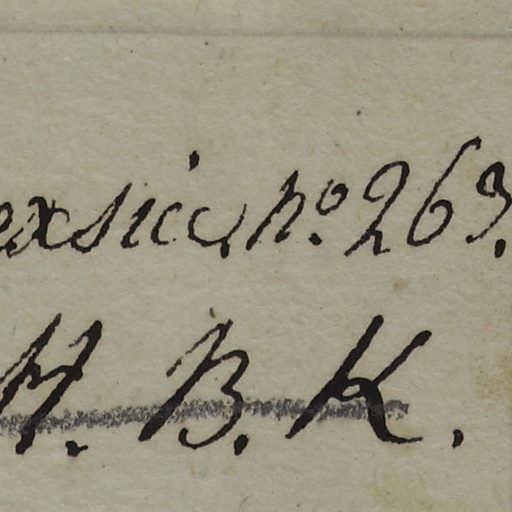 exsicc, no. 263.
H. B. K.